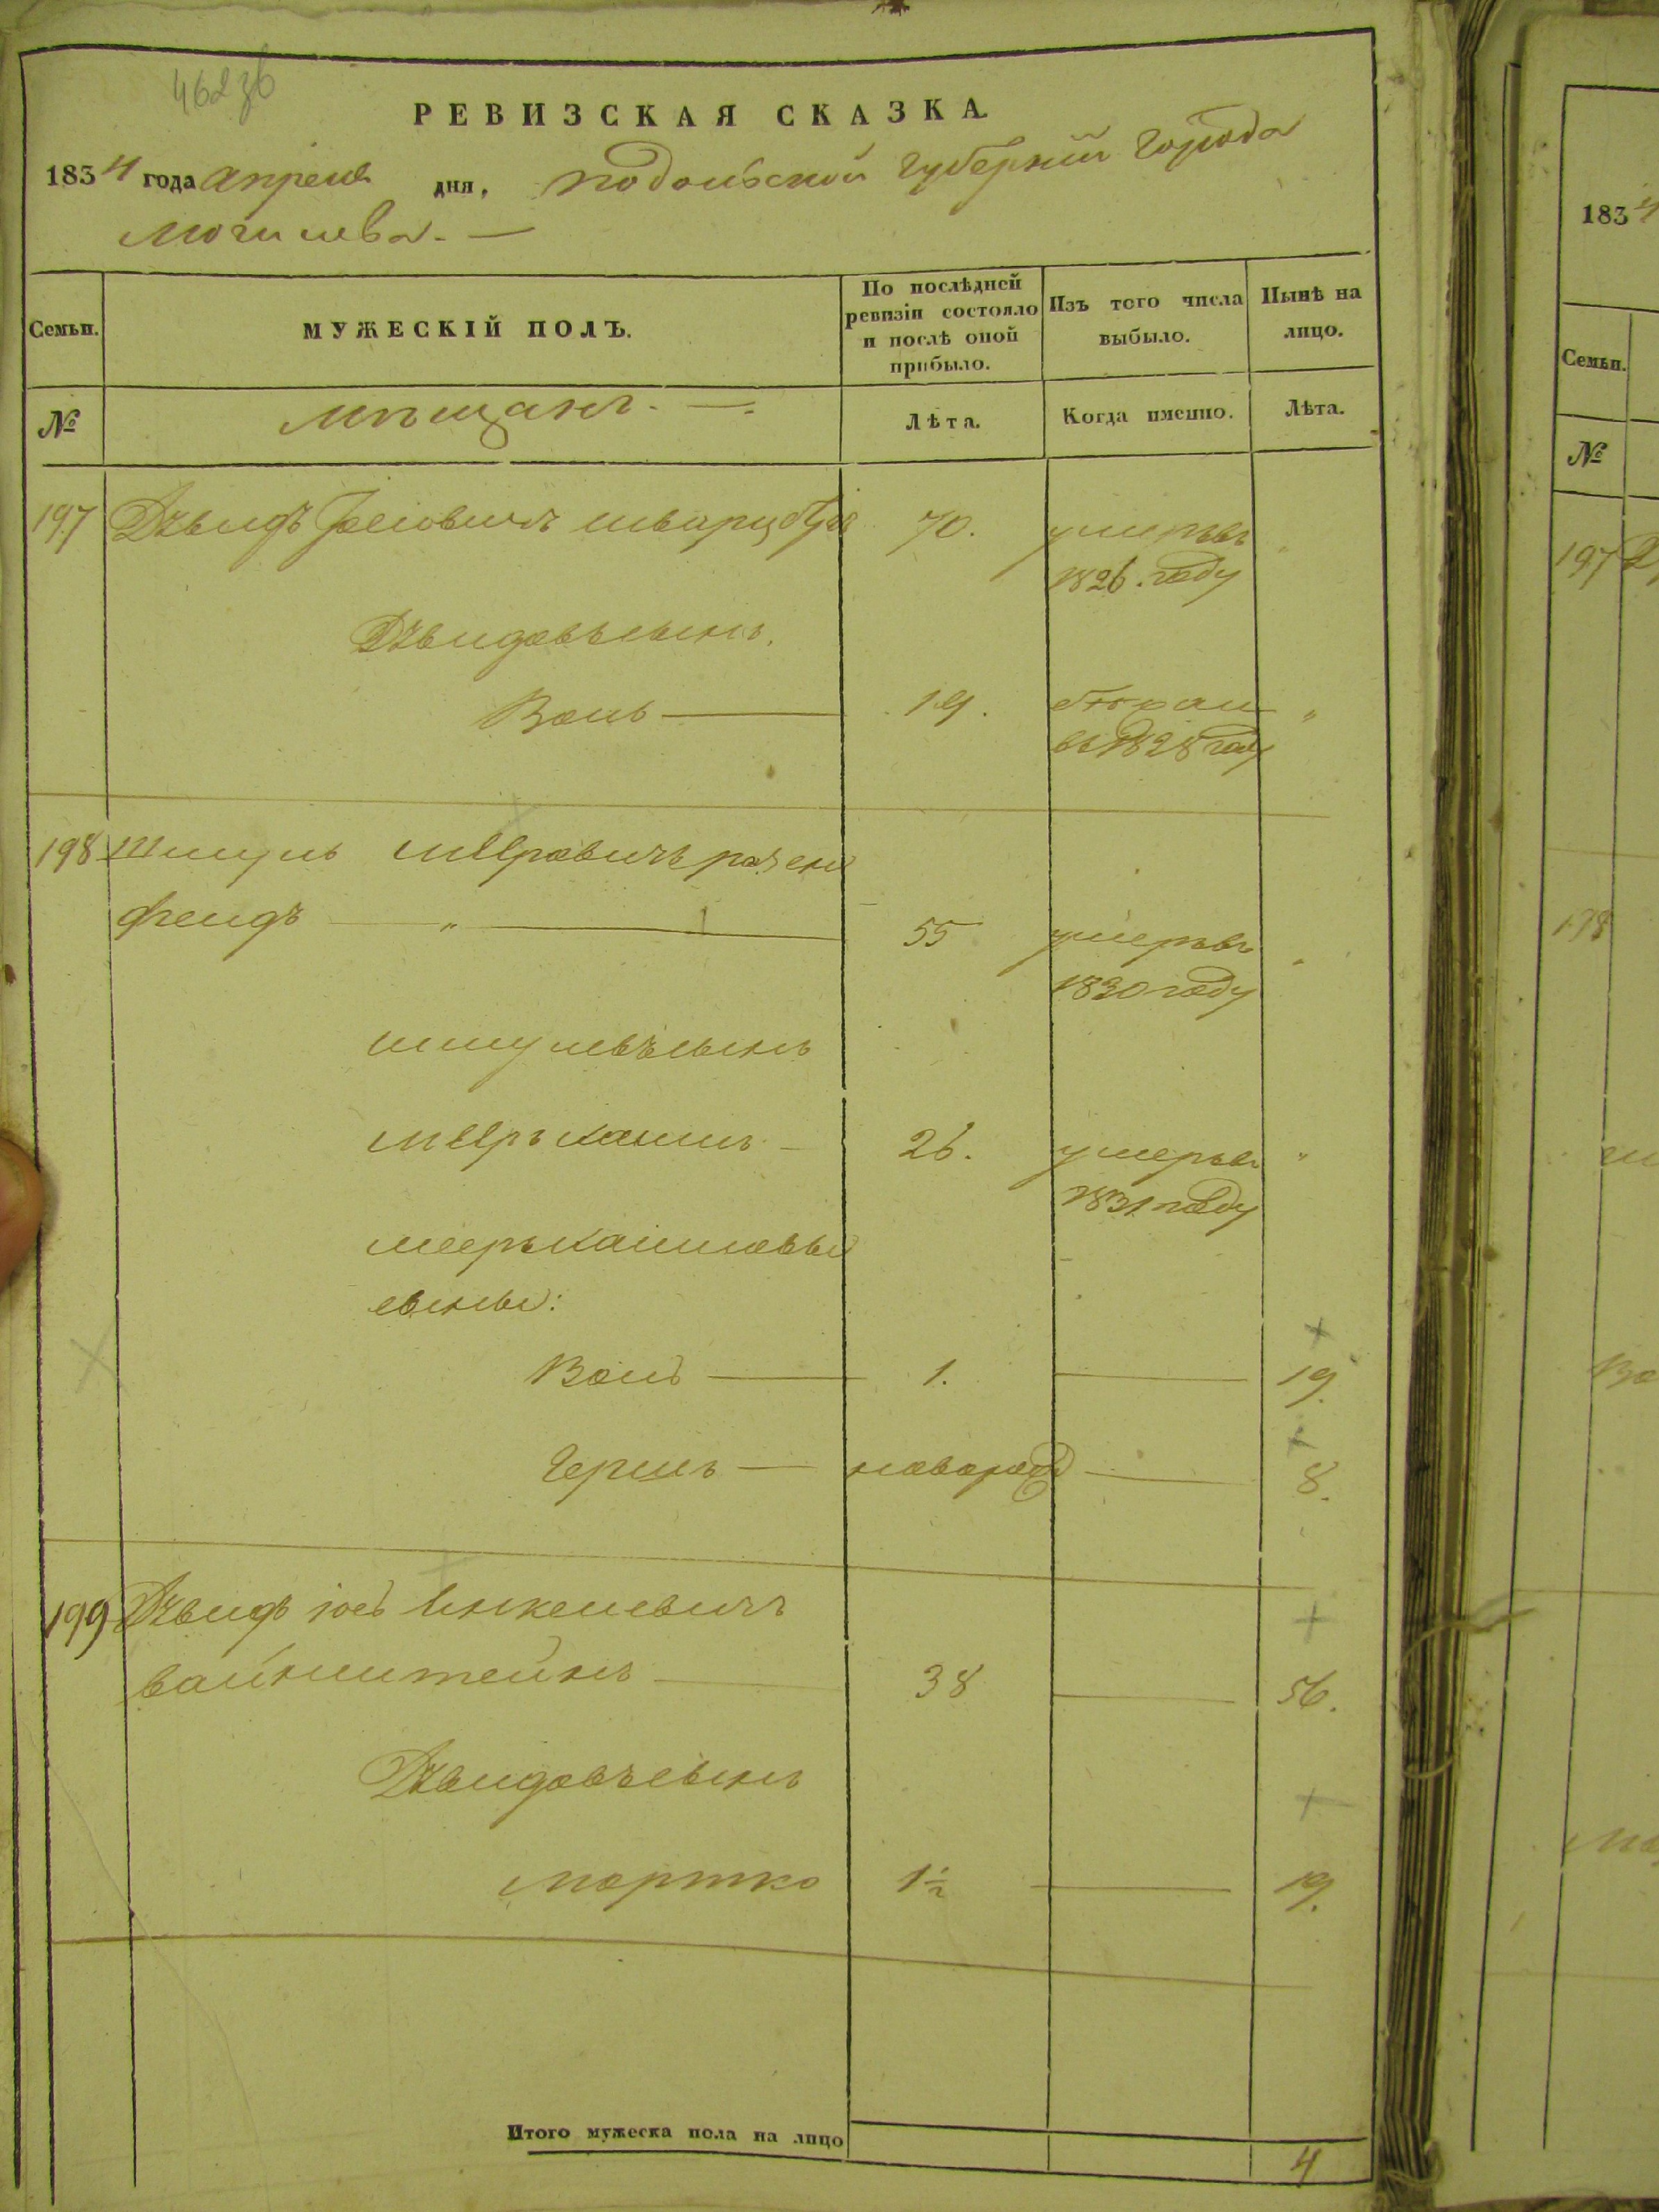 462 зв
РЕВИЗСКАЯ СКАЗКА
1834 года апреля дня, Подольской Губернии Города
Могилева. —
Семьи.
МУЖЕСКІЙ ПОЛЪ.
По послѣдней ревизіи состояло и послѣ оной прибыло.
Изъ того числа выбыло.
Нынѣ на лицо.
№
мещанъ. —.
Лѣта.
Когда именно.
Лѣта.
197 Дувидъ 70. умеръ въ
1826. году
Дувидовъ сынъ.
Волъ — 19. "
въ 1828 году
198 Шмуль Мееровичъ розен
фелдъ — " — 55 умеръ въ
1830 году
шмулевъ сынъ
Мееръ 26. умеръ въ "
1831 году
сыны:
Волъ — 1. — 19.
Гершъ — новорож — 8.
199 Дувидъ Іос Янкелевичъ
вайнштейнъ — 38 — 56.
Дувидовъ сынъ
Мортко 1½ — 19.
Итого мужеска пола на лицо 4
1834
Семьи.
№
197
198